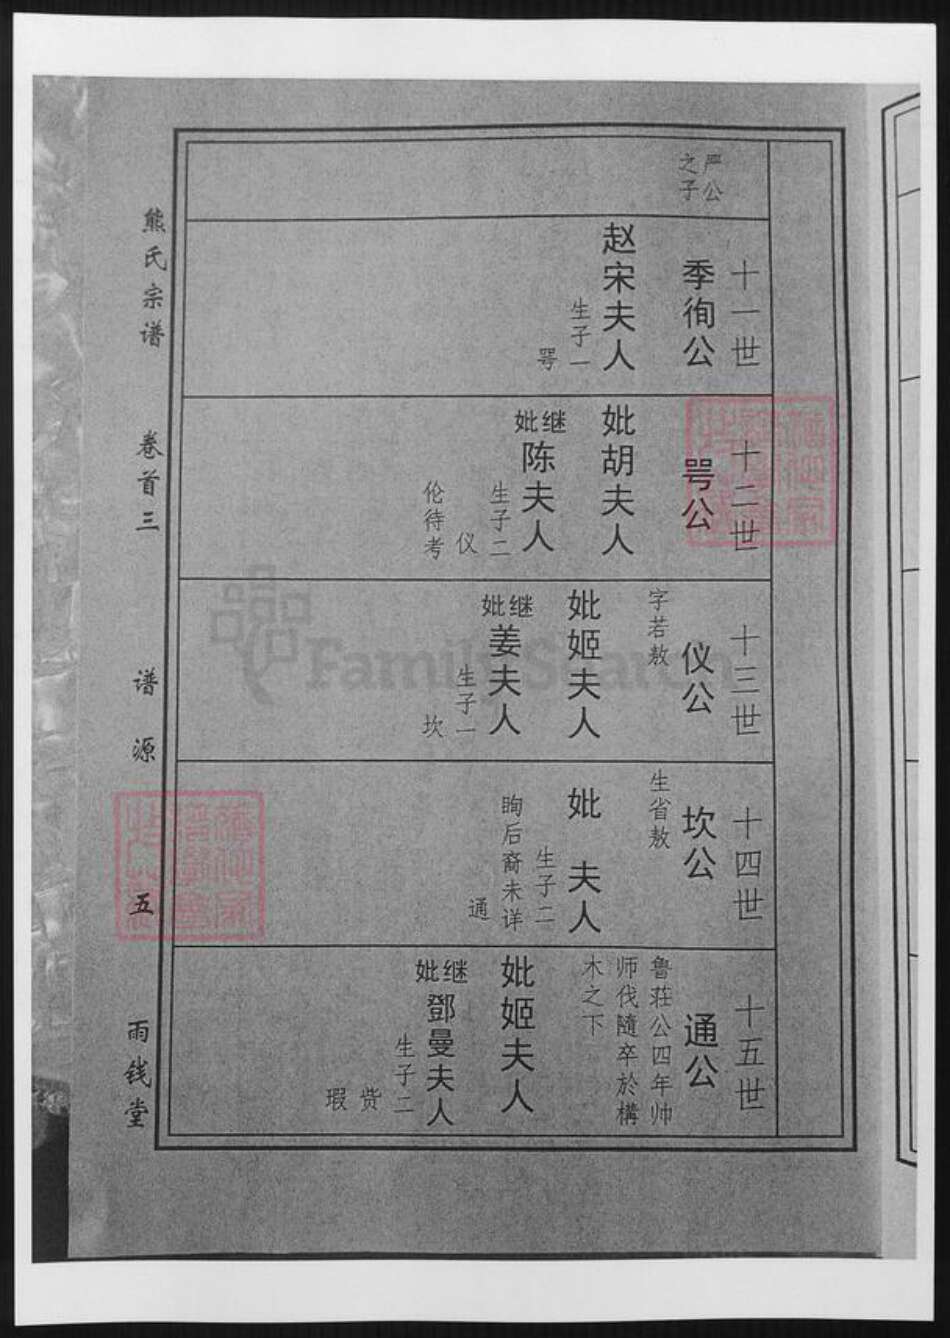 严公
之子
十一世
季徇公
赵宋夫人
生子一
咢
十二世
咢公
妣胡夫人
继妣
陈夫人
生子二
仪
伦待考
十三世
仪公
字若敖
妣姬夫人
继妣
姜夫人
生子一
坎
十四世
坎公
生省敖
妣 夫人
生子二
眴后裔未详
通
十五世
通公
鲁莊公四年帅
师伐隨卒於構
木之下
妣姬夫人
继妣
鄧曼夫人
生子二
赀
瑕
熊氏宗谱 卷首三 谱源 五 雨钱堂
FamilySearch